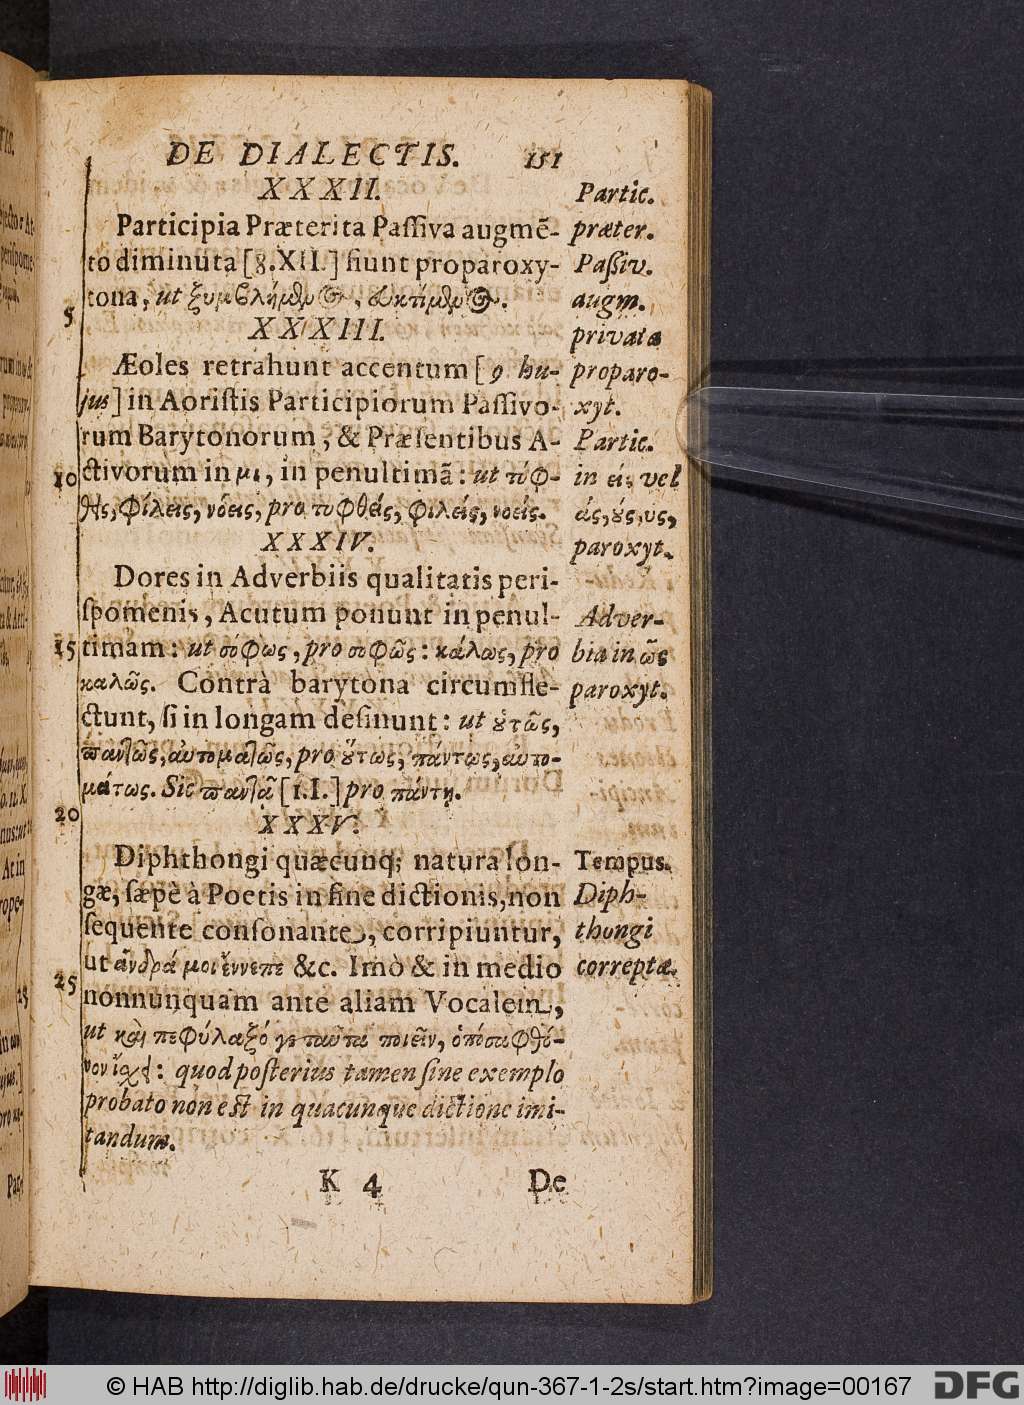 DE DIALECTIS. 151
XXXII.
Participia Præterita Paſſiva augmẽ-
to diminuta [8.XII.] fiunt proparoxy-
tona, ut ξυμβλήμενος, ἐυκτίμενος.
XXXIII.
Æoles retrahunt accentum [9 hu-
jus] in Aoriſtis Participiorum Paſſivo-
rum Barytonorum, & Præſentibus A-
ctivorum in μι, in penultimã: ut τύφ-
θεις, φίλεις, νόεις, pro τυφθείς, φιλείς, νοείς.
XXXIV.
Dores in Adverbiis qualitatis peri-
ſpomenis, Acutum ponunt in penul-
timam: ut σόφως, pro σοφῶς: κάλως, pro
καλῶς. Contrà barytona circumfle-
ctunt, ſi in longam deſinunt: ut ȣτῶς,
παντῶς, αυτοματῶς, pro ȣ̋τως, πάντως, αὐτο-
μάτως. Sic παντᾶ [1.I.] pro πάντη.
XXXV.
Diphthongi quæcunq; natura lon-
gæ, ſæpè à Poetis in fine dictionis, non
ſequente conſonante, corripiuntur,
ut ἄνδρά μοι ἔννεπε &c. Imò & in medio
nonnunquam ante aliam Vocalem,
ut καὶ πεφύλαξό γε ταῦτα ποιεῖν, ὁπόσα φθό-
νον ἴσχει: quod poſterius tamen ſine exemplo
probato non eſt in quacunque dictione imi-
tandum.
K 4 De
Partic.
præter.
Paſſiv.
augm.
privata
proparo-
xyt.
Partic.
in είς vel
άς, ȣ́ς, υς,
paroxyt.
Adver-
bia in ῶς
paroxyt.
Tempus.
Diph-
thongi
correptæ.
5
10
15
20
25
© HAB http://diglib.hab.de/drucke/qun-367-1-2s/start.htm?image=00167
DFG